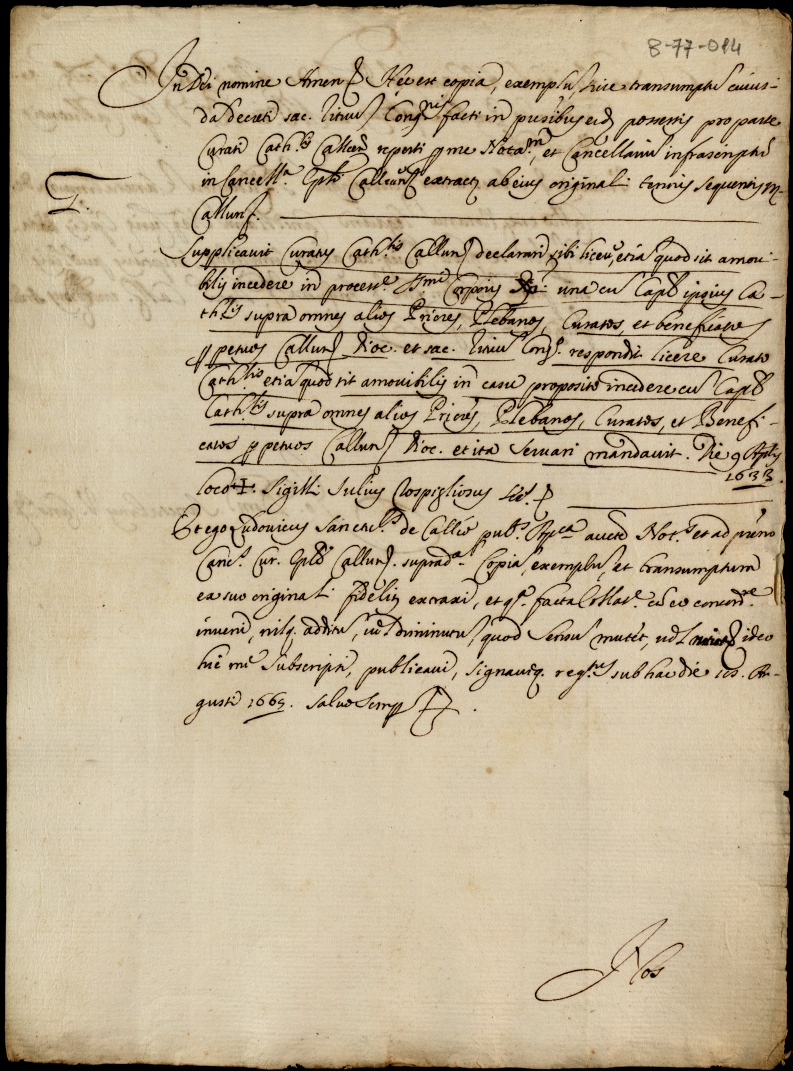 8-77-014
In Dei nomine Amen Hec est copia, exemplu, sive transumptu cuius-
da decreti sac. rituu Cong.nis facti in pusibus eid. potentis pro parte
Curati Cath.lis Callien reperti p me Nota.m, et Cancellariu infrascriptu
in Cancell.a Epli Calliun extracti ab eius originali tenoris sequentis
Calliun.
Supplicavit Curatus Cath.lis Calliun declarari sibi licere, etia quod sit amovi-
bilis incedere in process.e SSmi Corporis Xpi una cu Caplo ipsius Ca-
th.lis supra omnes alios Priores, Plebanos, Curatos, et beneficiatos
ppetuos Calliun Dioc. et sac. rituu Cong. respondit licere Curato
Cath.lis etia quod sit amovibilis in casu proposito incedere cu Caplo
Cath.lis supra omnes alios Priores, Plebanos, Curatos, et Benefi-
ciatos ppetuos Calliun Dioc. et ita servari mandavit. Die 9 Aplis
1633.
loco + Sigilli Julius Rospigliosus Sec.
Et ego Ludovicus Sanctu.s de Callio pub.s Ap.ca aucte Not.s et ad pns
Canc.s Cur. Eplis Calliun. suprad.a Copia, exemplu, et transumptum
ex suo originali fideliter extraxi, et q. facta collat.e cu eo concord.re
inveni, nilq. additu, vel diminutu, quod sensu mutet, vel ideo
hic me subscripsi, publicavi, signaviq. reg.s sub hac die Au-
gusti 1665. salvo semp
Nos